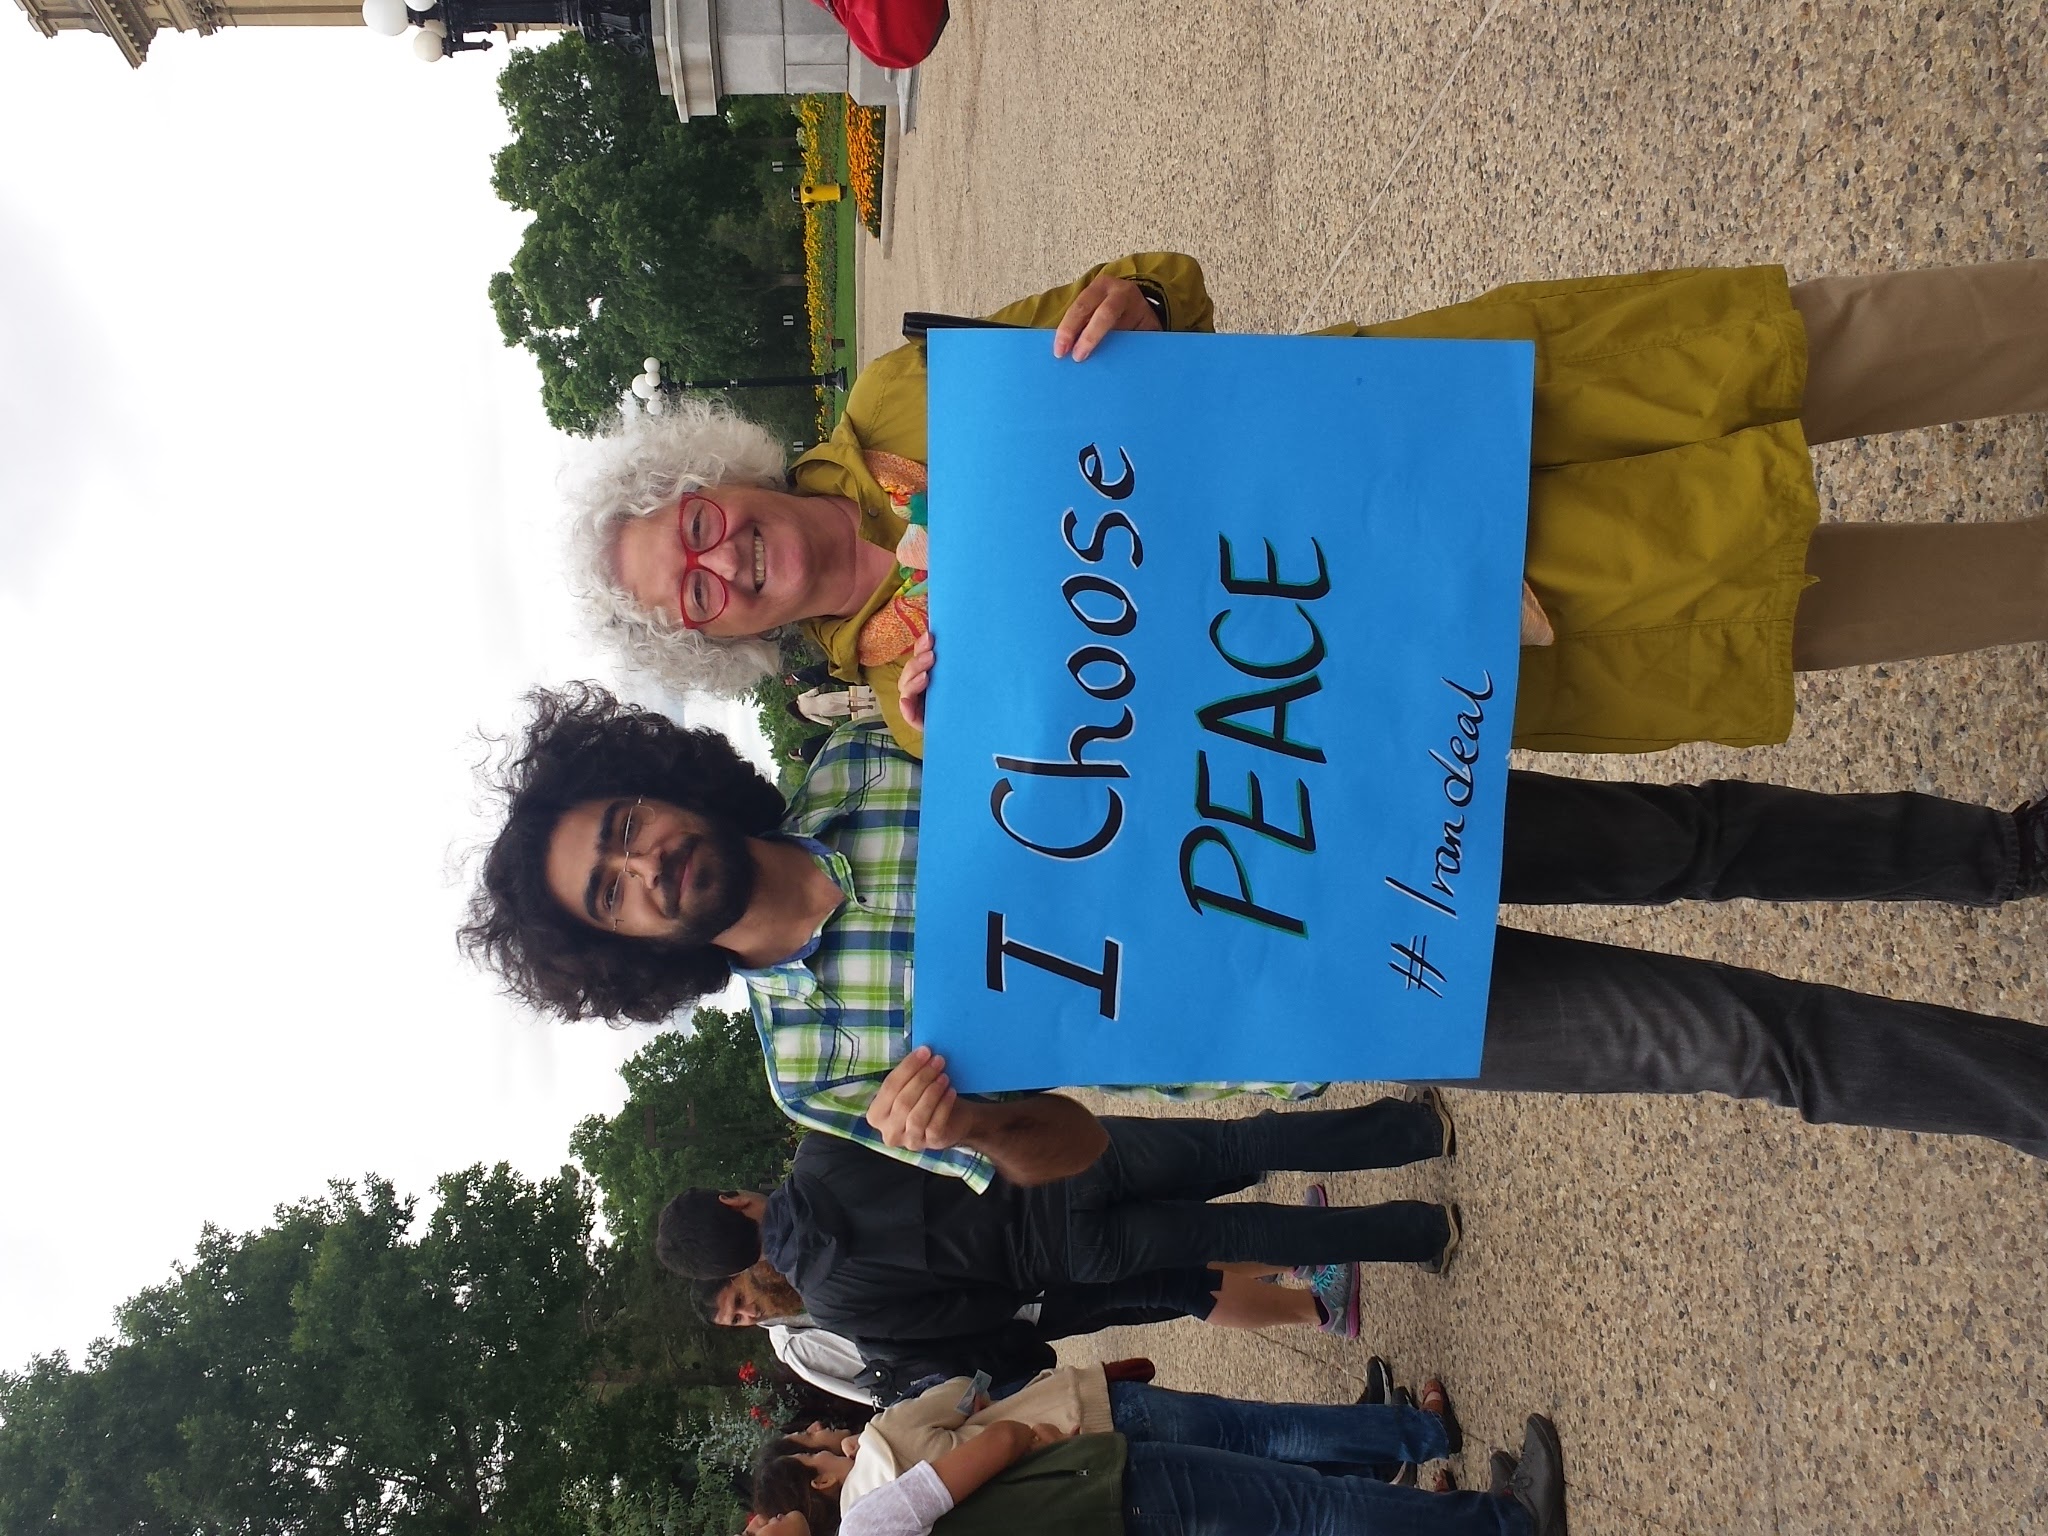 I Choose
PEACE
# Iran deal